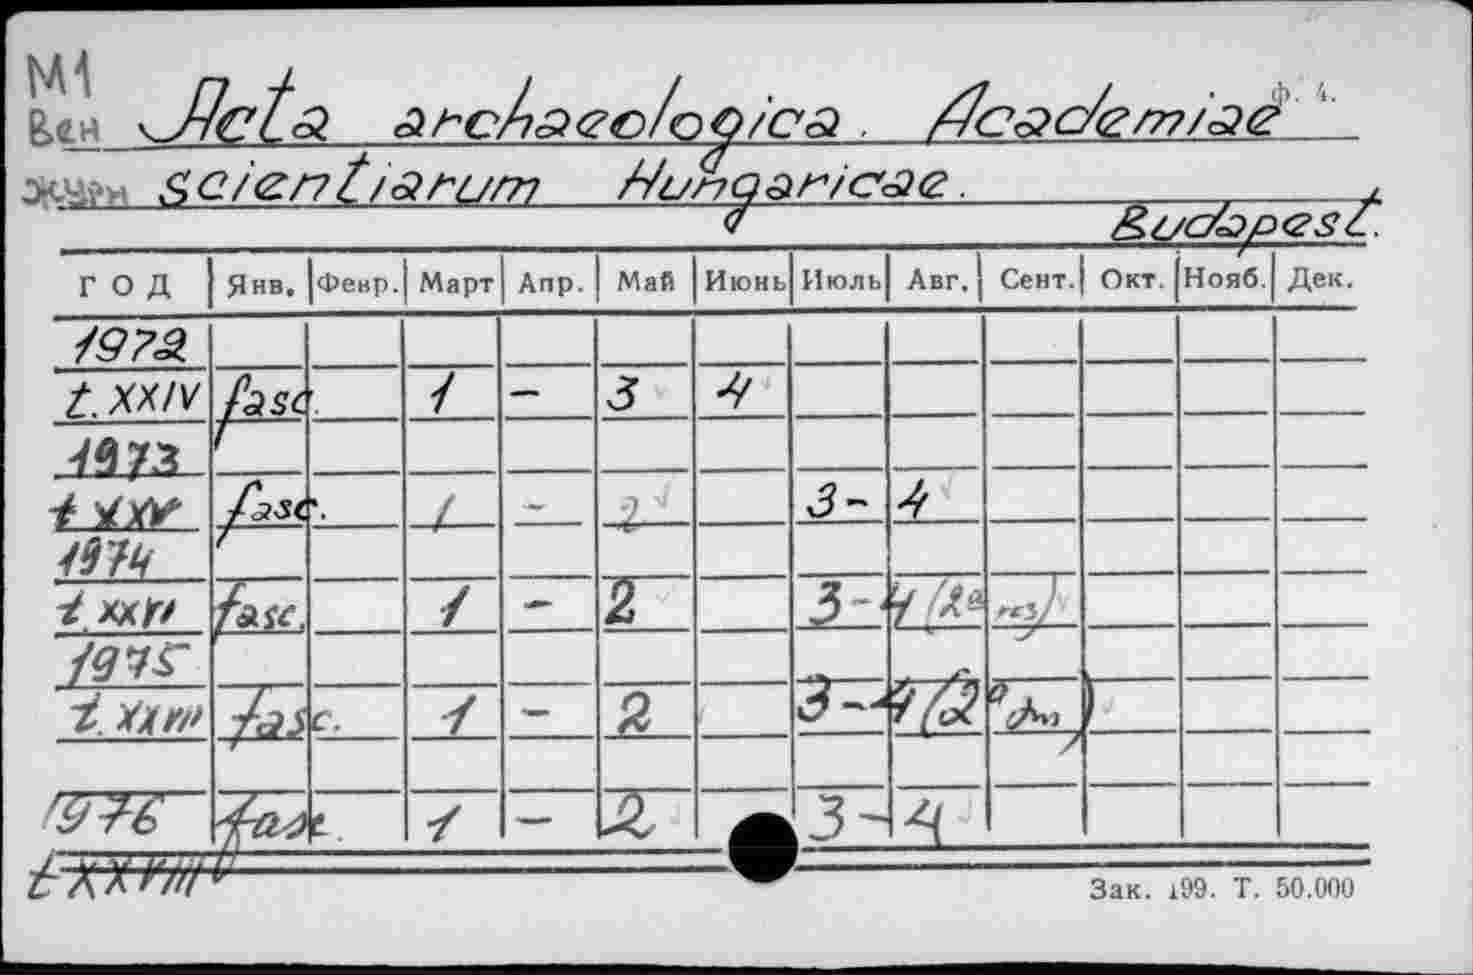 М1 Acta archaeologica. Academiae ф. 4.
Вен
журн scientiarum Hungaricae.
Budapest.
ГОД Янв. Февр. Март Апр. Май Июнь Июль Авг. Сент. Окт. Нояб. Дек.
1972
t. XXIV fasc. 1 - 3 4
1973
t XXV fasc. 1 - 2 3 - 4
1974
t. XXVI fasc. 1 - 2 3 - 4 (2 экз)
1975
t. XXVII fasc. 1 - 2 3 - 4 (2 экз)
1976 fasc. 1 - 2 3 - 4
t XXVIII
Зак. 199. Т. 50.000